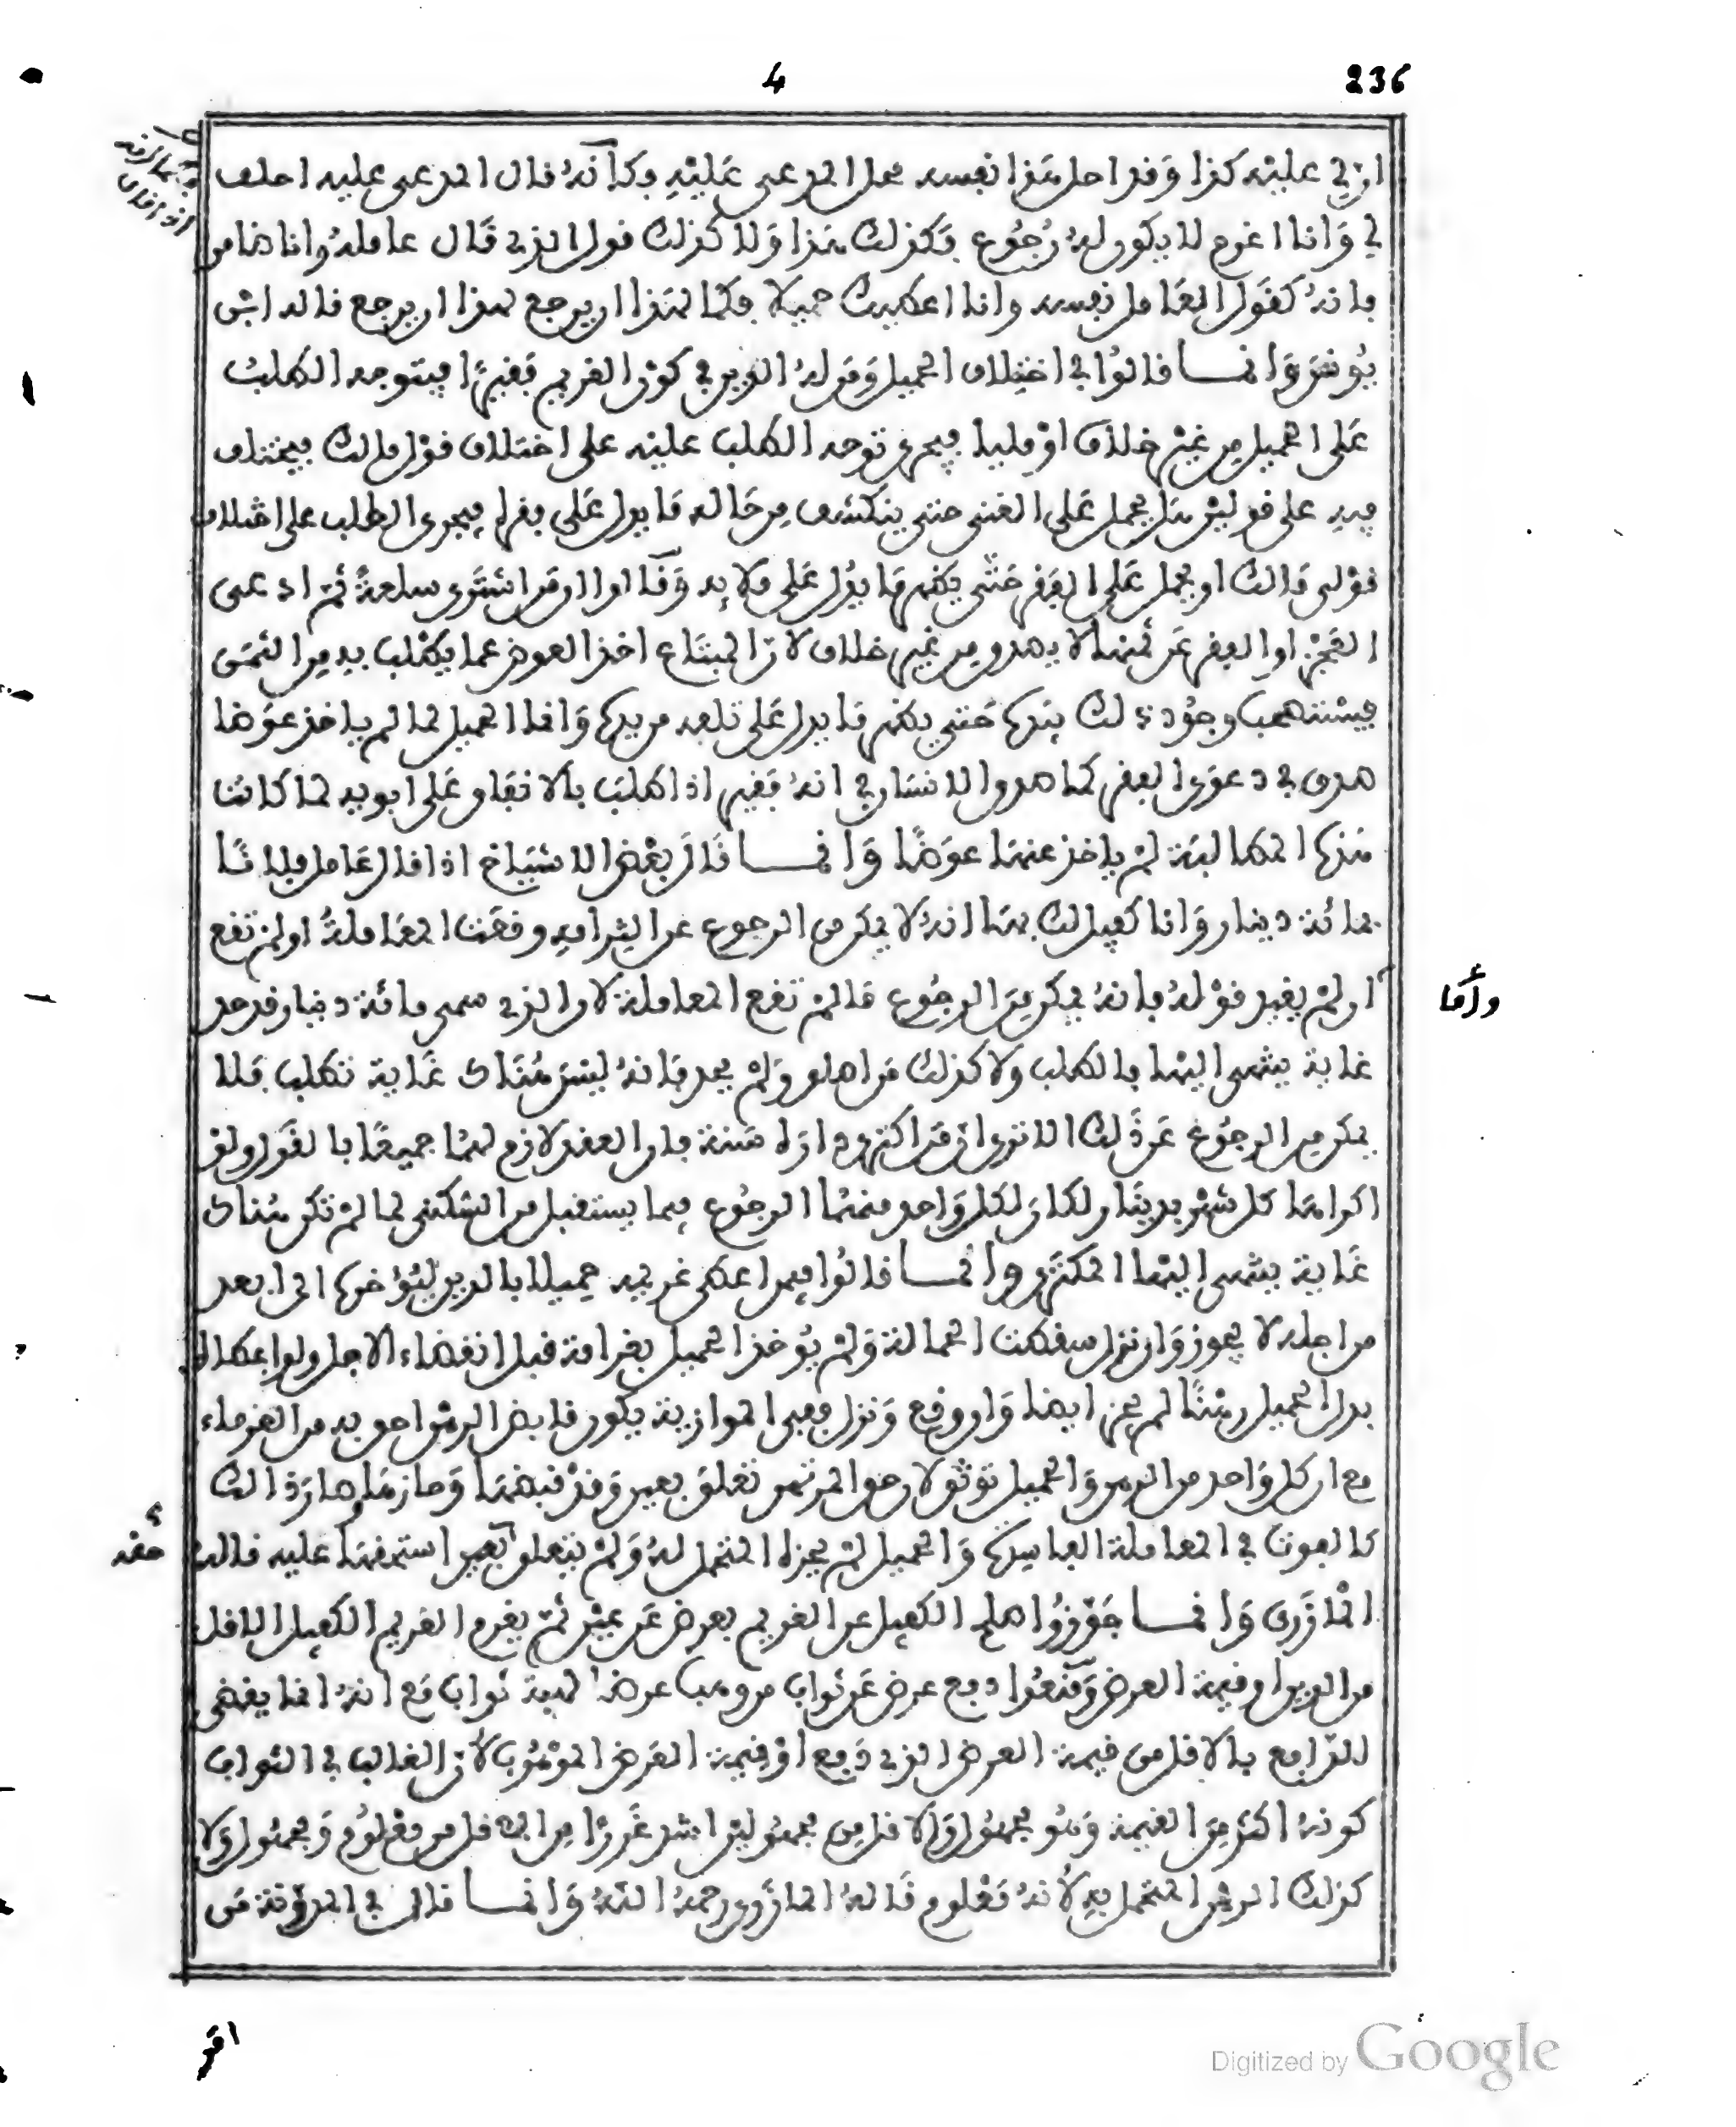 4
236
ان لي عليه كذا وقد احل هذا نفسه محل المدعى عليه وكأنه قال المدعى عليه احلف
لي وانا اغرم لا يكون له رجوع فكذلك هذا ولا كذلك قول الذي قال عامله وانا ضامن
فانه كقول العامل نفسه وانا اعطيك حميلا فكما لهذا ان يرجع لهذا ان يرجع قاله ابن
يونس وانمـــا قالوا في اختلاف الحميل ورب الدين في كون الغريم فقيرا فيتوجه الطلب
على الحميل من غير خلاف او مليا فيجري توجه الطلب عليه على اختلاف قول مالك فيختلف
فيه على قولين هل يحمل على الغنى حتى ينكشف من حاله ما يدل على فقره فيجري الطلب على اختلاف
قولى مالك او يحمل على الفقر حتى يظهر ما يدل على ملائه وقالوا ان من اشترى سلعة ثم ادعى
العجز او الفقر عن ثمنها لا يصدق من غير خلاف لان المبتاع اخذ العوض عما يطلب به من الثمن
فيستصحب وجود ذلك بيده حتى يظهر ما يدل على تلفه من يده واما الحميل لما لم ياخذ عوضا
صدق في دعوى الفقر كما صدق الانسان في انه فقير اذا طلب بالانفاق على ابويه لما كانت
هذه المطالبة لم ياخذ عنها عوضا وانمـــا قال بعض الاشياخ اذا قال عامل فلانا
بمائة دينار وانا كفيل لك بها انه لا يمكن من الرجوع عن التزامه وقعت المعاملة او لم تقع
او لم يقيد قوله فانه يمكن من الرجوع ما لم تقع المعاملة لان الذي سمى مائة دينار قد حد
غاية ينتهى اليها بالطلب ولا كذلك من اطلق ولم يحد فانه ليس هناك غاية تطلب فلا
يمكن من الرجوع عن ذلك الا ترى ان من اكترى دارا سنة فان العقد لازم لهما جميعا بالقول ولو
اكراها كل شهر بدينار لكان لكل واحد منهما الرجوع فيما يستقبل من السكنى لما لم تكن هناك
غاية ينتهى اليها المكترى وانمـــا قالوا فيمن اعطى غريمه حميلا بالدين ليؤخره الى ابعد
من اجله لا يجوز وان نزل سقطت الحمالة ولم يؤخذ الحميل بغرامة قبل انقضاء الاجل ولو اعطاه
بدل الحميل رهنا لم يجز ايضا وان وقع ونزل ففي الموازية يكون قابض الرهن احق به من الغرماء
مع ان كل واحد من الرهن والحميل توثق لان حق المرتهن تعلق بعين وقد قبضها وحازها فصار ذالك
كالفوت في المعاملة الفاسدة والحميل لم يحزه المتحمل له ولم يتعلق بعين استحقها عليه قاله
المازرى وانمـــا جوزوا صلح الكفيل عن الغريم بعرض عن عين ثم يغرم الغريم الكفيل الاقل
من الدين او قيمة العرض ومنعوا دفع عرض عن ثواب من وهب عرضا لهبة ثواب مع انه انما يقضى
للدافع بالاقل من قيمة العرض الذى دفع او قيمة العرض الموهوب لان الغالب في الثواب
كونه اكثر من القيمة وهو مجهول والاقل من مجهولين اشد غررا من الاقل من معلوم ومجهول ولا
كذلك الدين المتحمل به لانه معلوم قاله المازرى رحمه الله وانمـــا قال في المدونة من
وأما
حقه
اقر
Digitized by Google